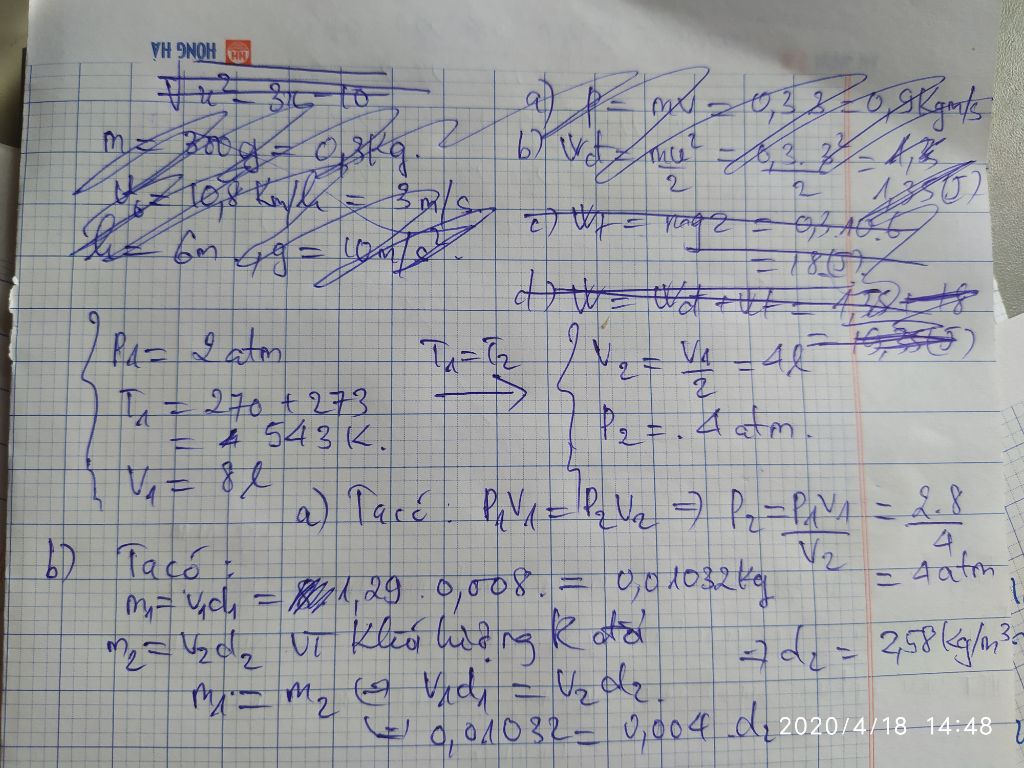 HONG HA
HH
√x² - 3x - 10
m = 300g = 0,3kg.
v = 10,8 Km/h = 3 m/s
h = 6m, g = 10m/s².
a) p = mv = 0,3.3 = 0,9Kgm/s
b) Wđ = mv²/2 = 0,3.3²/2 =
1,35(J)
c) Wt = mgz = 0,3.10.6
= 18(J).
d) W = Wđ + Wt = 1,35 + 18
= 19,35(J)
P₁ = 2 atm
T₁ = 270 + 273
= 543 K.
V₁ = 8l
T₁ = T₂
V₂ = V₁/2 = 4l
P₂ = . 4 atm.
a) Ta có : P₁V₁ = P₂V₂ => P₂ = P₁V₁/V₂ = 2.8/4
= 4 atm
b) Ta có :
m₁ = V₁d₁ = 1,29 . 0,008. = 0,01032 kg
m₂ = V₂d₂ Vì Khối lượng K đổi
m₁ = m₂ <=> V₁d₁ = V₂d₂.
<=> 0,01032 = 0,004 . d₂
=> d₂ = 2,58 kg/m³
2020/4/18 14:48